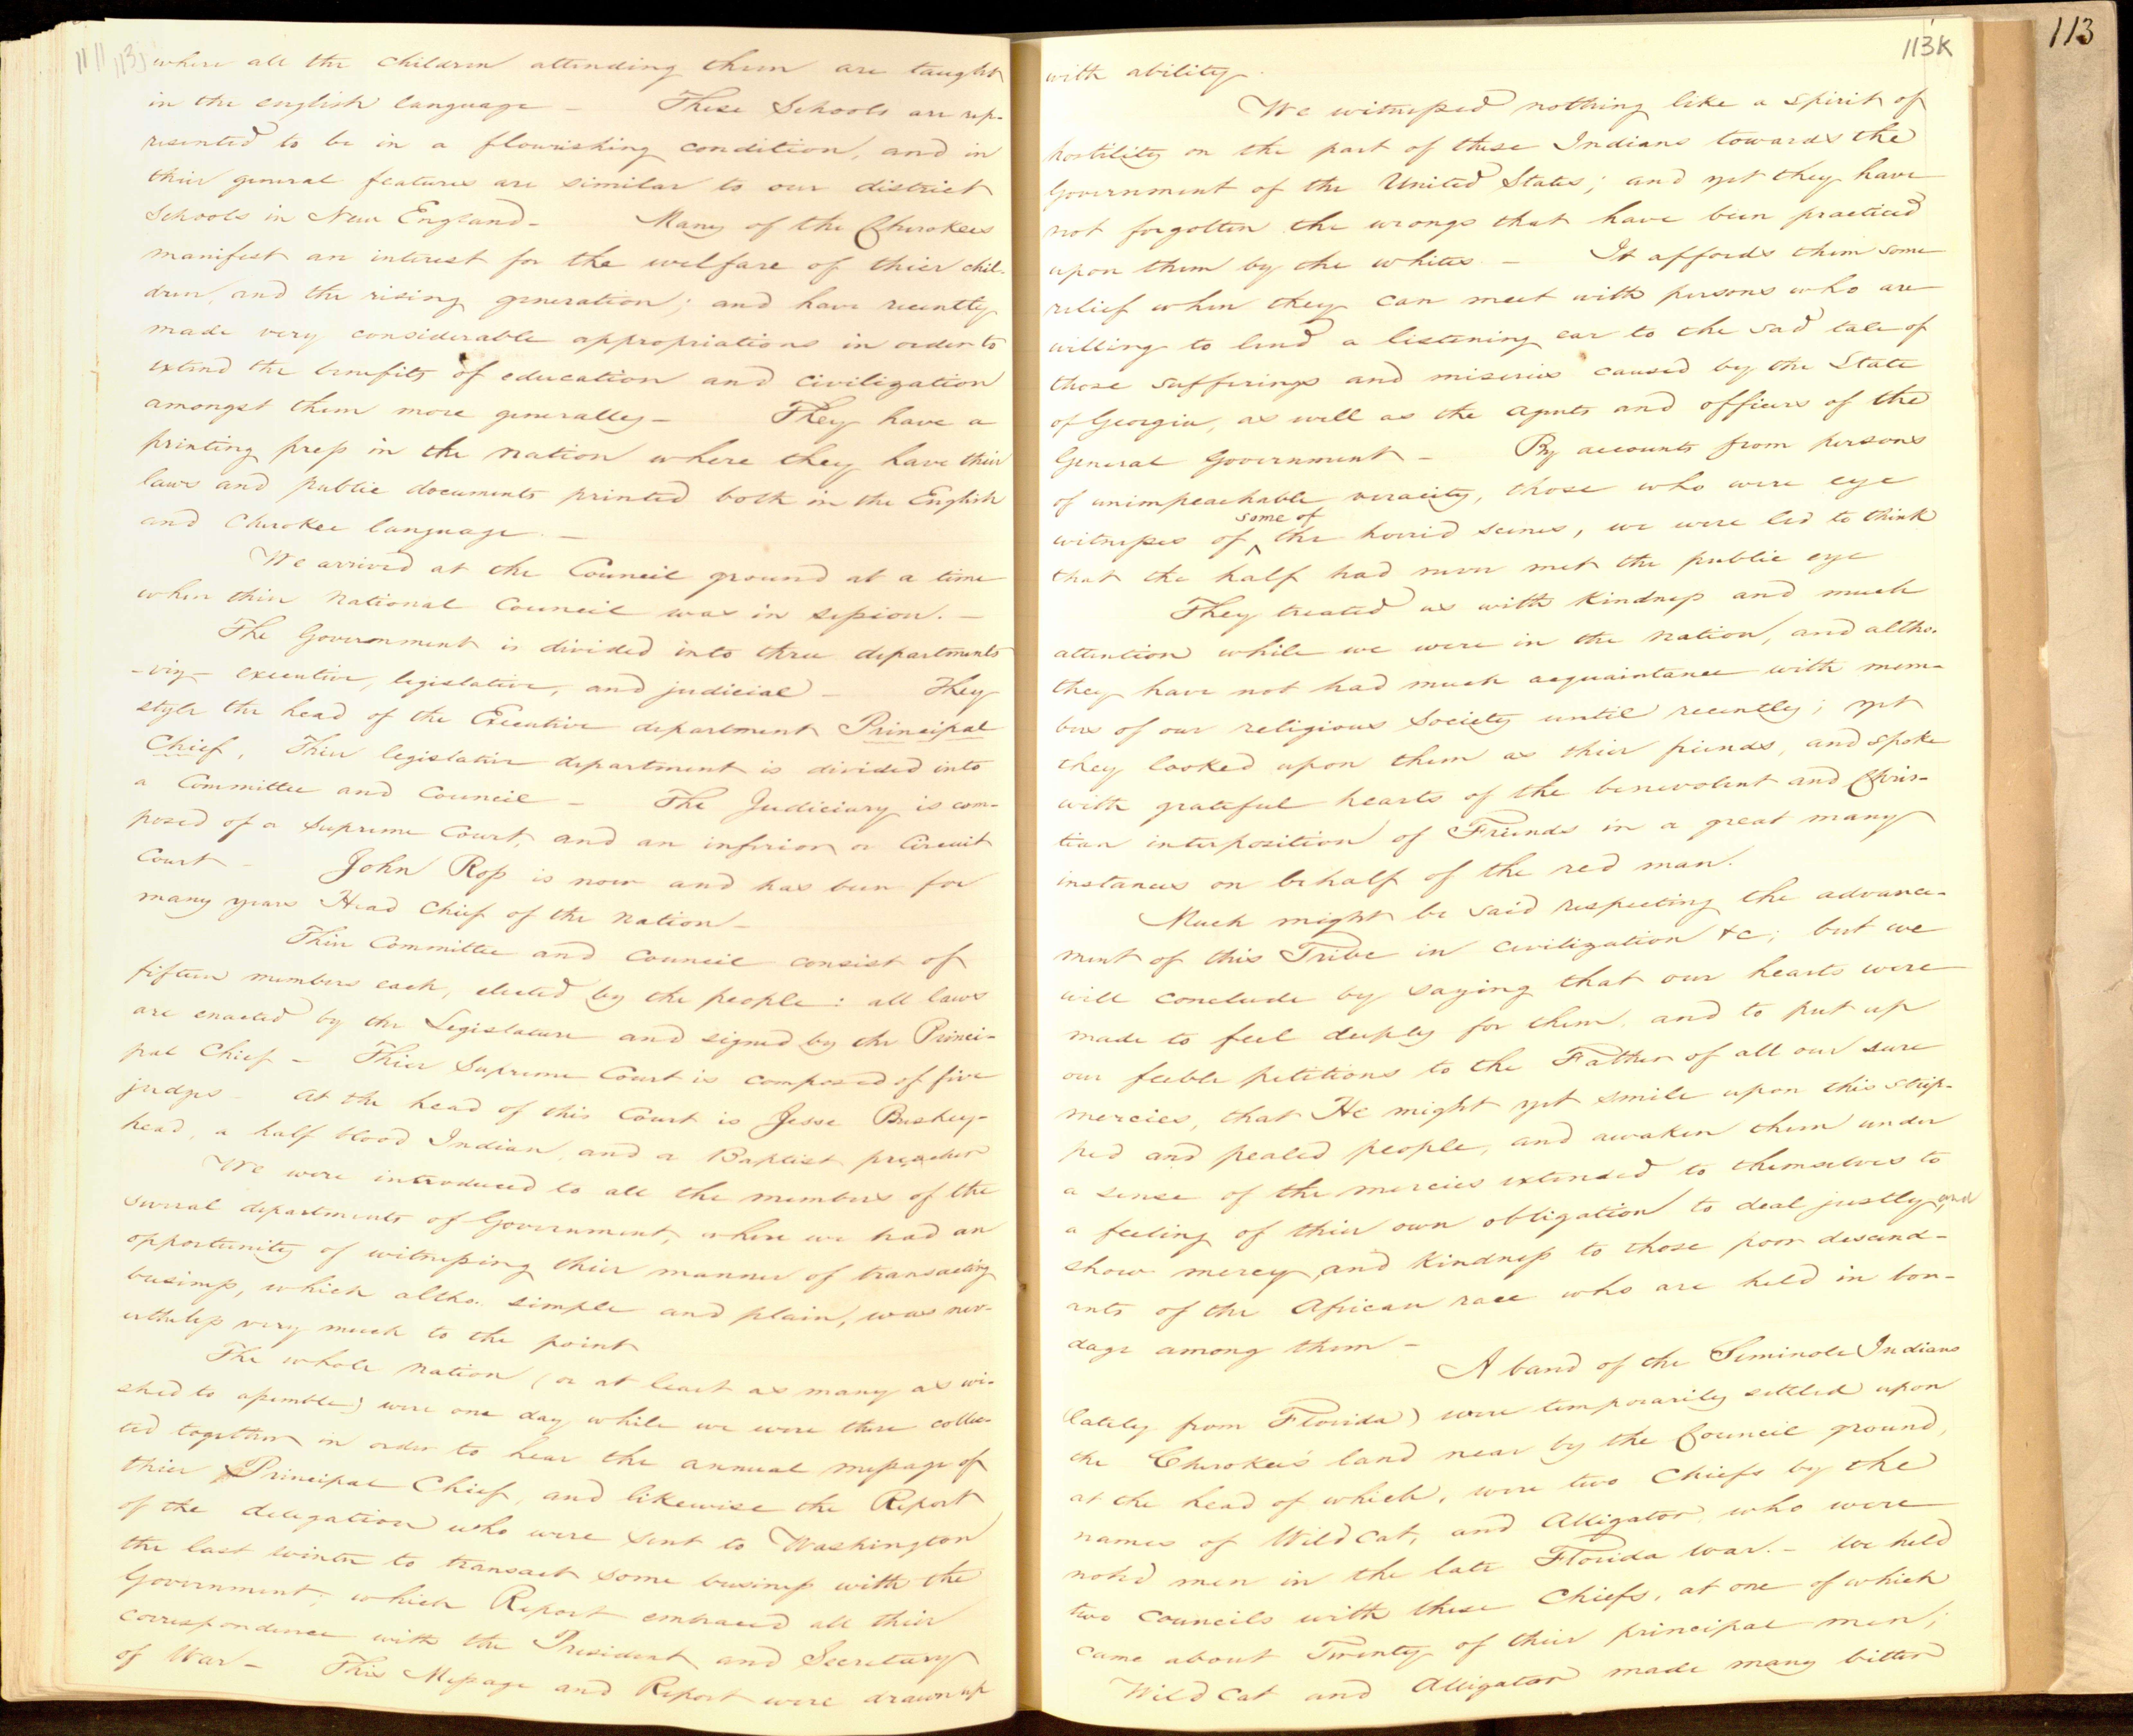 113
113K
where all the children attending them are taught
in the english language — These Schools are rep-
resented to be in a flourishing condition, and in
their general features are similar to our district
Schools in New England — Many of the Cherokees
manifest an interest for the welfare of thier chil-
dren, and the rising generation; and have recently
made very considerable appropriations in order to
extend the benefits of education and civilization
amongst them more generally — They have a
printing press in the nation where they have thier
laws and public documents printed both in the English
and Cherokee language. —
We arrived at the Council ground at a time
when thier National Council was in session. —
The Government is divided into three departments
- viz - executive, legislative, and judicial — They
style the head of the Executive department Principal
Chief, Thier legislative department is divided into
a Committee and Council — The Judiciary is com-
posed of a Supreme Court, and an inferior or Circuit
Court — John Ross is now and has been for
many years Head Chief of the Nation —
Thier Committee and Council consist of
fifteen members each, elected by the people: all laws
are enacted by the Legislature and signed by the Princi-
pal Chief — Thier Supreme Court is composed of five
judges — At the head of this Court is Jesse Bushey-
head, a half blood Indian, and a Baptist preacher
We were introduced to all the members of the
several departments of Government, where we had an
opportunity of witnessing thier manner of transacting
business, which altho. simple and plain, was nev-
ertheless very much to the point
The whole Nation (or at least as many as wi-
shed to assemble) were one day while we were there collec-
ted together in order to hear the annual message of
thier Principal Chief, and likewise the Report
of the delegation who were sent to Washington
the last winter to transact some business with the
Government, which Report embraced all thier
correspondence with the President and Secretary
of War — This Message and Report were drawn up
with ability.
We witnessed nothing like a spirit of
hostility on the part of these Indians towards the
Government of the United States; and yet they have
not forgotten the wrongs that have been practiced
upon them by the whites. — It affords them some
relief when they can meet with persons who are
willing to lend a listening ear to the sad tale of
those sufferings and miseries caused by the State
of Georgia, as well as the agents and officers of the
General Government — By accounts from persons
of unimpeachable veracity, those who were eye
witnesses of some of the horrid scenes, we were led to think
that the half had never met the public eye
They treated us with kindness and much
attention while we were in the nation, and altho.
they have not had much acquaintance with mem-
bers of our religious Society until recently; yet
they looked upon them as thier friends, and spoke
with grateful hearts of the benevolent and Chris-
tian interposition of Friends in a great many
instances on behalf of the red man.
Much might be said respecting the advance-
ment of this Tribe in civilization &c; but we
will conclude by saying that our hearts were
made to feel deeply for them, and to put up
our feeble petitions to the Father of all our sure
mercies, that He might yet smile upon this strip-
ped and pealed people, and awaken them under
a sense of the mercies extended to themselves to
a feeling of thier own obligation to deal justly, and
show mercy, and kindness to those poor descend-
ants of the African race who are held in bon-
dage among them —
A band of the Seminole Indians
(lately from Florida) were temporarily settled upon
the Cherokee's land near by the Council ground,
at the head of which, were two Chiefs by the
names of Wild Cat, and Alligator, who were
noted men in the late Florida War. — We held
two Councils with these Chiefs, at one of which
came about Twenty of their principal men;
Wild Cat and Alligator made many bitter